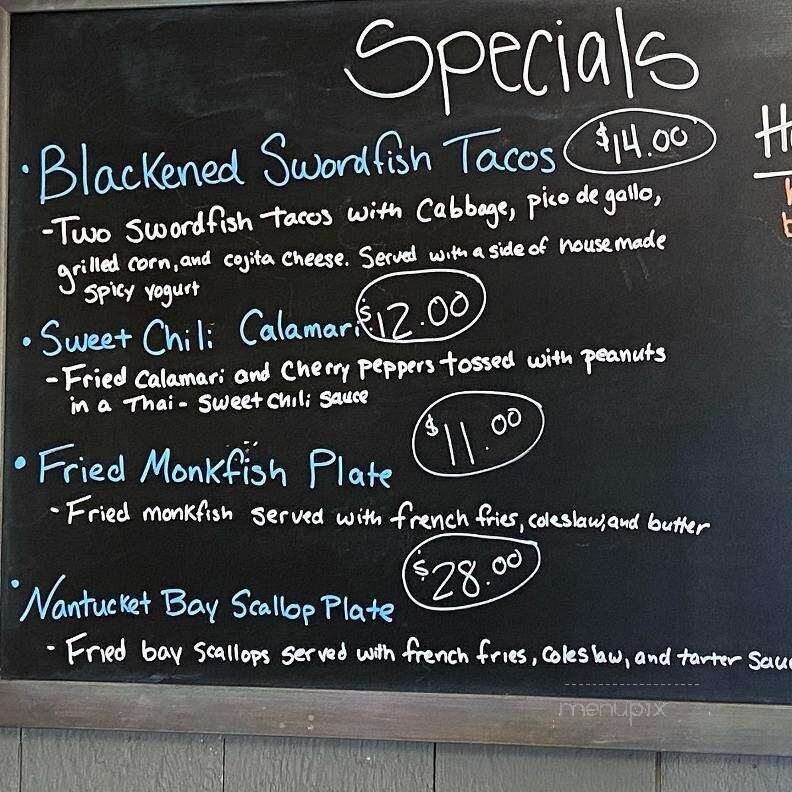 Specials
• Blackened Swordfish Tacos $14.00
- Two swordfish tacos with cabbage, pico de gallo,
grilled corn, and cojita cheese. Served with a side of housemade
spicy yogurt
• Sweet Chili Calamari $12.00
- Fried calamari and cherry peppers tossed with peanuts
in a Thai-sweet chili sauce
$11.00
• Fried Monkfish Plate
- Fried monkfish served with french fries, coleslaw, and butter
$28.00
• Nantucket Bay Scallop Plate
- Fried bay scallops served with french fries, coleslaw, and tarter
menupix